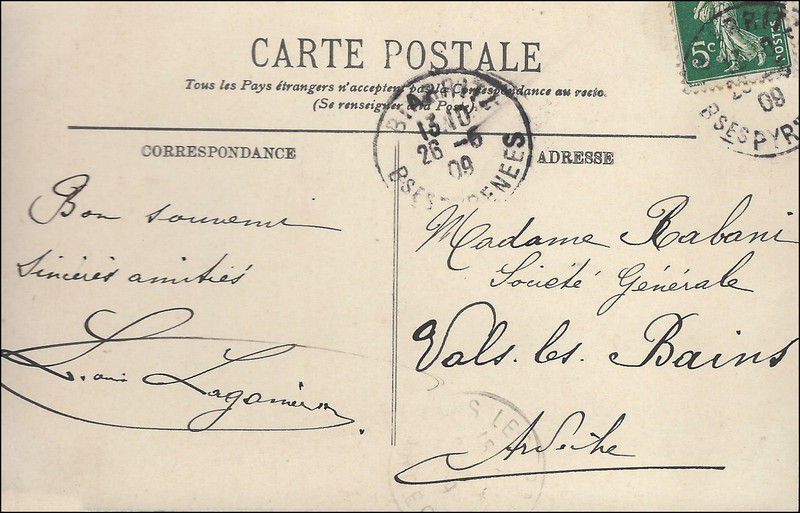 CARTE POSTALE
Tous les Pays étrangers n'acceptent pas la Correspondance au recto.
(Se renseigner à la Poste)
BIARRITZ
13 10
26 -5
09
BSES PYRENEES
5c
POSTES
09
BSES PYRE
CORRESPONDANCE
Bon souvenir
Sincères amitiés
Louis
ADRESSE
Madame Rabani
Société Générale
Vals. les. Bains
Ardèche
S LE